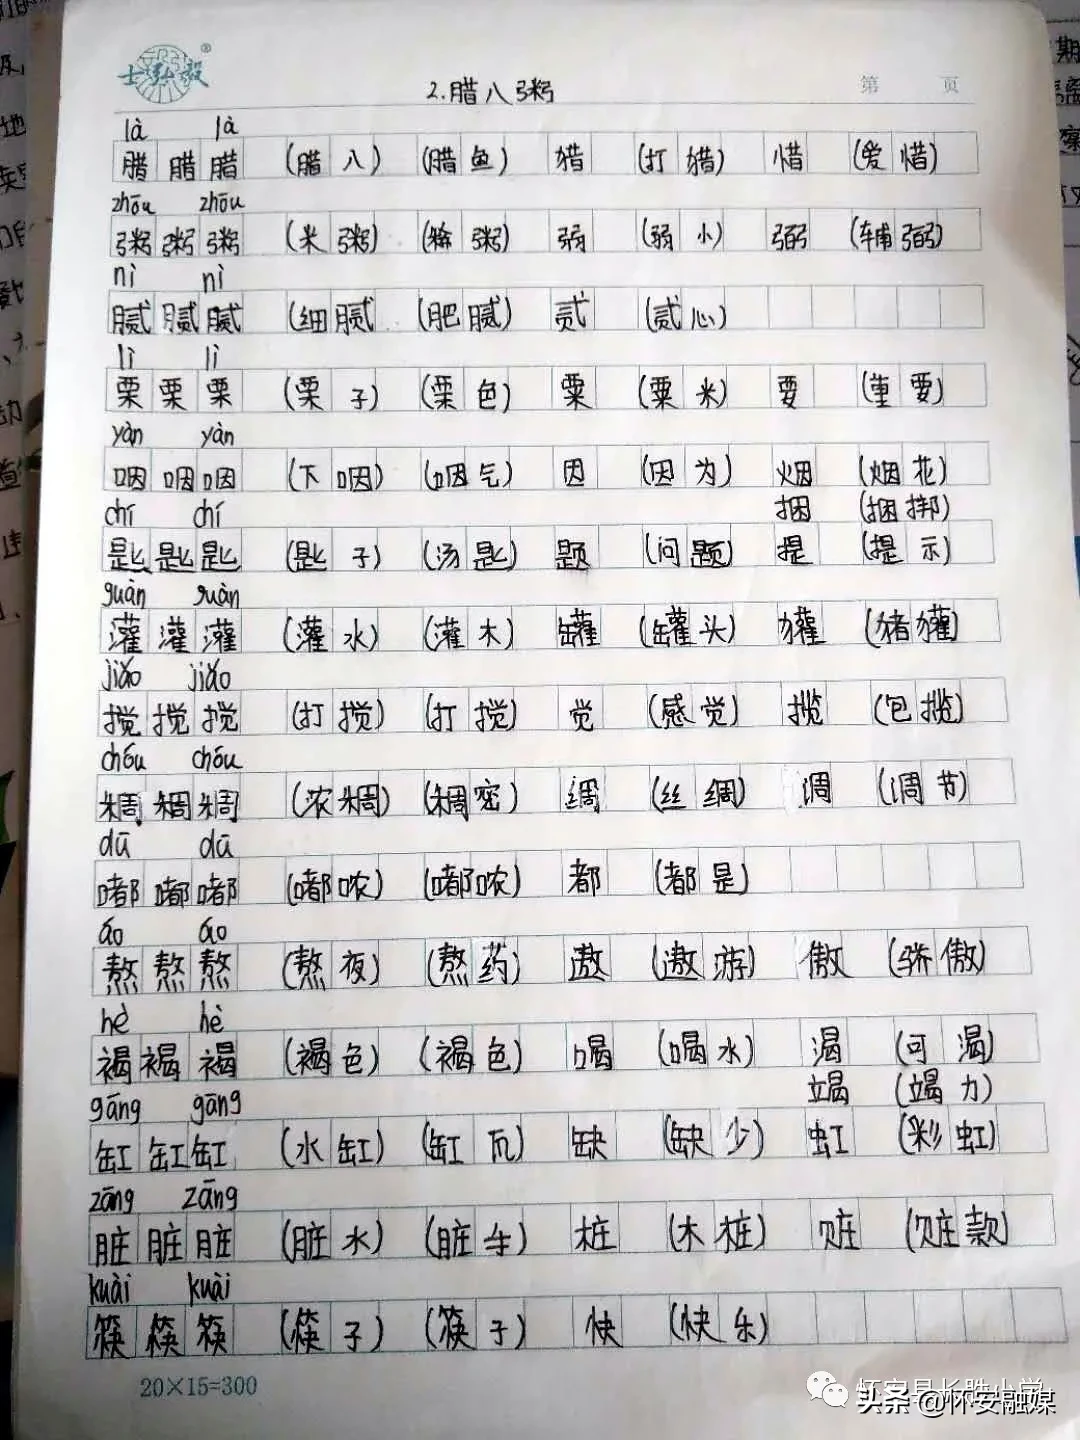 士弘毅®
第 页
2.腊八粥
là là
腊腊腊 (腊八) (腊鱼) 猎 (打猎) 惜 (爱惜)
zhōu zhōu
粥粥粥 (米粥) (稀粥) 弱 (弱小) 粥 (辅弼)
nì nì
腻腻腻 (细腻 (肥腻) 贰 (贰心)
lì lì
栗栗栗 (栗子) (栗色) 粟 (粟米) 要 (重要)
yàn yàn
咽咽咽 (下咽) (咽气) 因 (因为) 烟 (烟花)
chí chí 捆 (捆绑)
匙匙匙 (匙子) (汤匙) 题 (问题) 提 (提示)
guàn guàn
灌灌灌 (灌水) (灌木) 罐 (罐头) 獾 (猪獾)
jiǎo jiǎo
搅搅搅 (打搅) (打搅) 觉 (感觉) 揽 (包揽)
chóu chóu
稠稠稠 (浓稠) (稠密) 绸 (丝绸) 调 (调节)
dū dū
嘟嘟嘟 (嘟哝) (嘟哝) 都 (都是)
áo áo
熬熬熬 (熬夜) (熬药) 遨 (遨游) 傲 (骄傲)
hè hè
褐褐褐 (褐色) (褐色) 喝 (喝水) 渴 (可渴)
gāng gāng 竭 (竭力)
缸缸缸 (水缸) (缸瓦) 缺 (缺少) 虹 (彩虹)
zāng zāng
脏脏脏 (脏水) (脏车) 桩 (木桩) 赃 (赃款)
kuài kuài
筷筷筷 (筷子) (筷子) 快 (快乐)
20×15=300
怀安县长胜小学
头条@怀安融媒